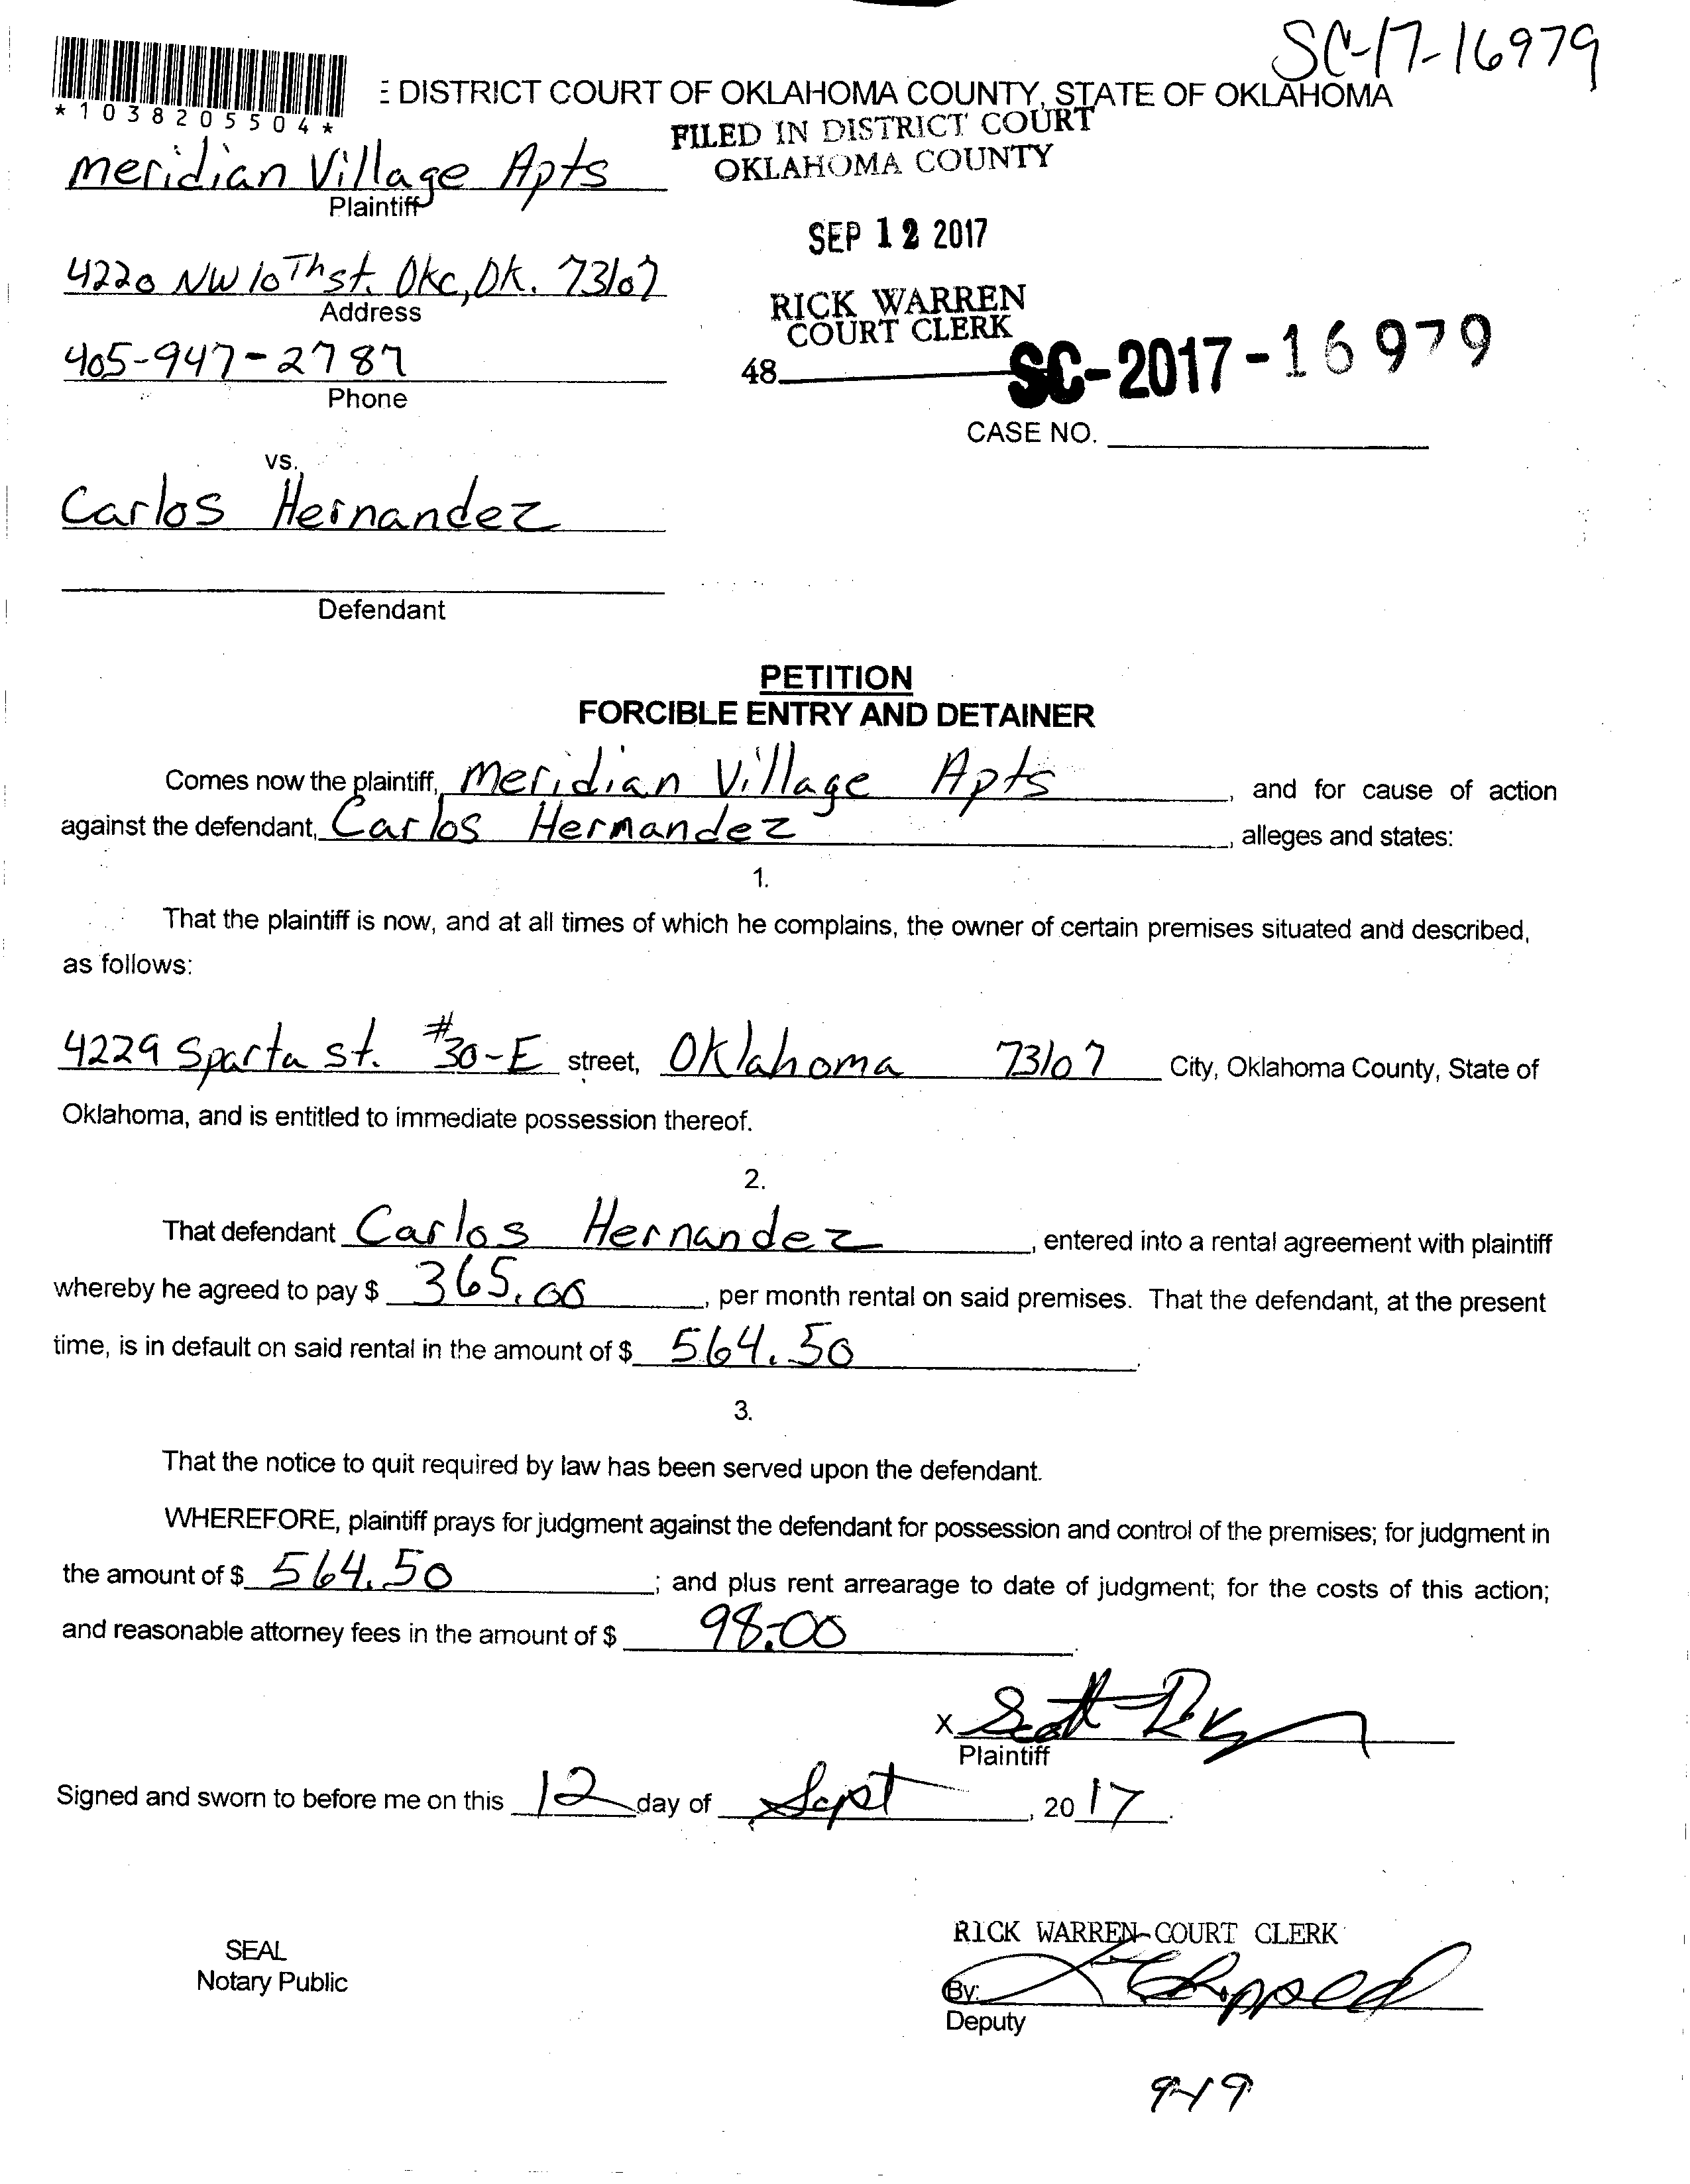 SC-17-16979
*1038205504*
E DISTRICT COURT OF OKLAHOMA COUNTY, STATE OF OKLAHOMA
FILED IN DISTRICT COURT
OKLAHOMA COUNTY
Meridian Village Apts
Plaintiff
SEP 12 2017
4220 NW 10Th st. Okc, Ok. 73107
Address
RICK WARREN
COURT CLERK
405-947-2787
Phone
48.
SC-2017-16979
CASE NO.
vs.
Carlos Hernandez
Defendant
PETITION
FORCIBLE ENTRY AND DETAINER
Comes now the plaintiff, Meridian Village Apts, and for cause of action
against the defendant, Carlos Hernandez, alleges and states:
1.
That the plaintiff is now, and at all times of which he complains, the owner of certain premises situated and described,
as follows:
4229 Sparta st. #30-E street, Oklahoma 73107 City, Oklahoma County, State of
Oklahoma, and is entitled to immediate possession thereof.
2.
That defendant Carlos Hernandez, entered into a rental agreement with plaintiff
whereby he agreed to pay $ 365.00, per month rental on said premises. That the defendant, at the present
time, is in default on said rental in the amount of $ 564.50.
3.
That the notice to quit required by law has been served upon the defendant.
WHEREFORE, plaintiff prays for judgment against the defendant for possession and control of the premises; for judgment in
the amount of $ 564.50; and plus rent arrearage to date of judgment; for the costs of this action;
and reasonable attorney fees in the amount of $ 98.00.
X
Plaintiff
Signed and sworn to before me on this 12 day of Sept, 2017.
SEAL
Notary Public
RICK WARREN COURT CLERK
By:
Deputy
9-19